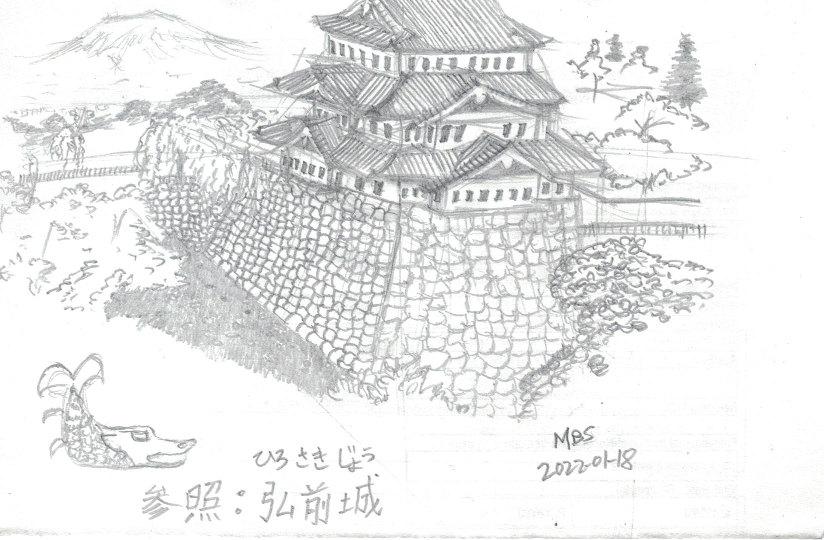 ひろさきじょう
参照：弘前城
MBS
2022-01-18